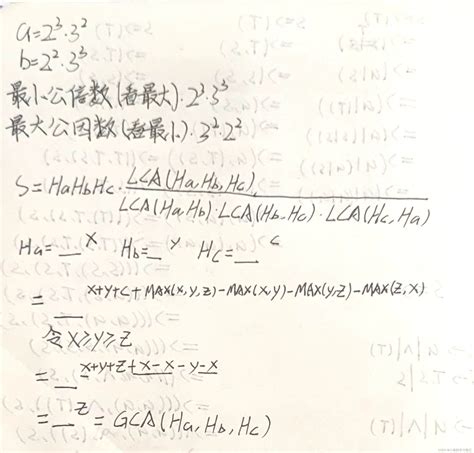 a=2³·3²
b=2²·3³
最小公倍数(看最大):2³·3³
最大公因数(看最小):3²·2²
S=HaHbHc·LCA(Ha,Hb,Hc)/LCA(Ha,Hb)·LCA(Hb,Hc)·LCA(Hc,Ha)
Ha=_^x Hb=_^y Hc=_^c
=_^x+y+c+MAX(x,y,z)-MAX(x,y)-MAX(y,z)-MAX(z,x)
令X≥Y≥Z
=_^x+y+z+x-x-y-x
=_^z=GCA(Ha,Hb,Hc)